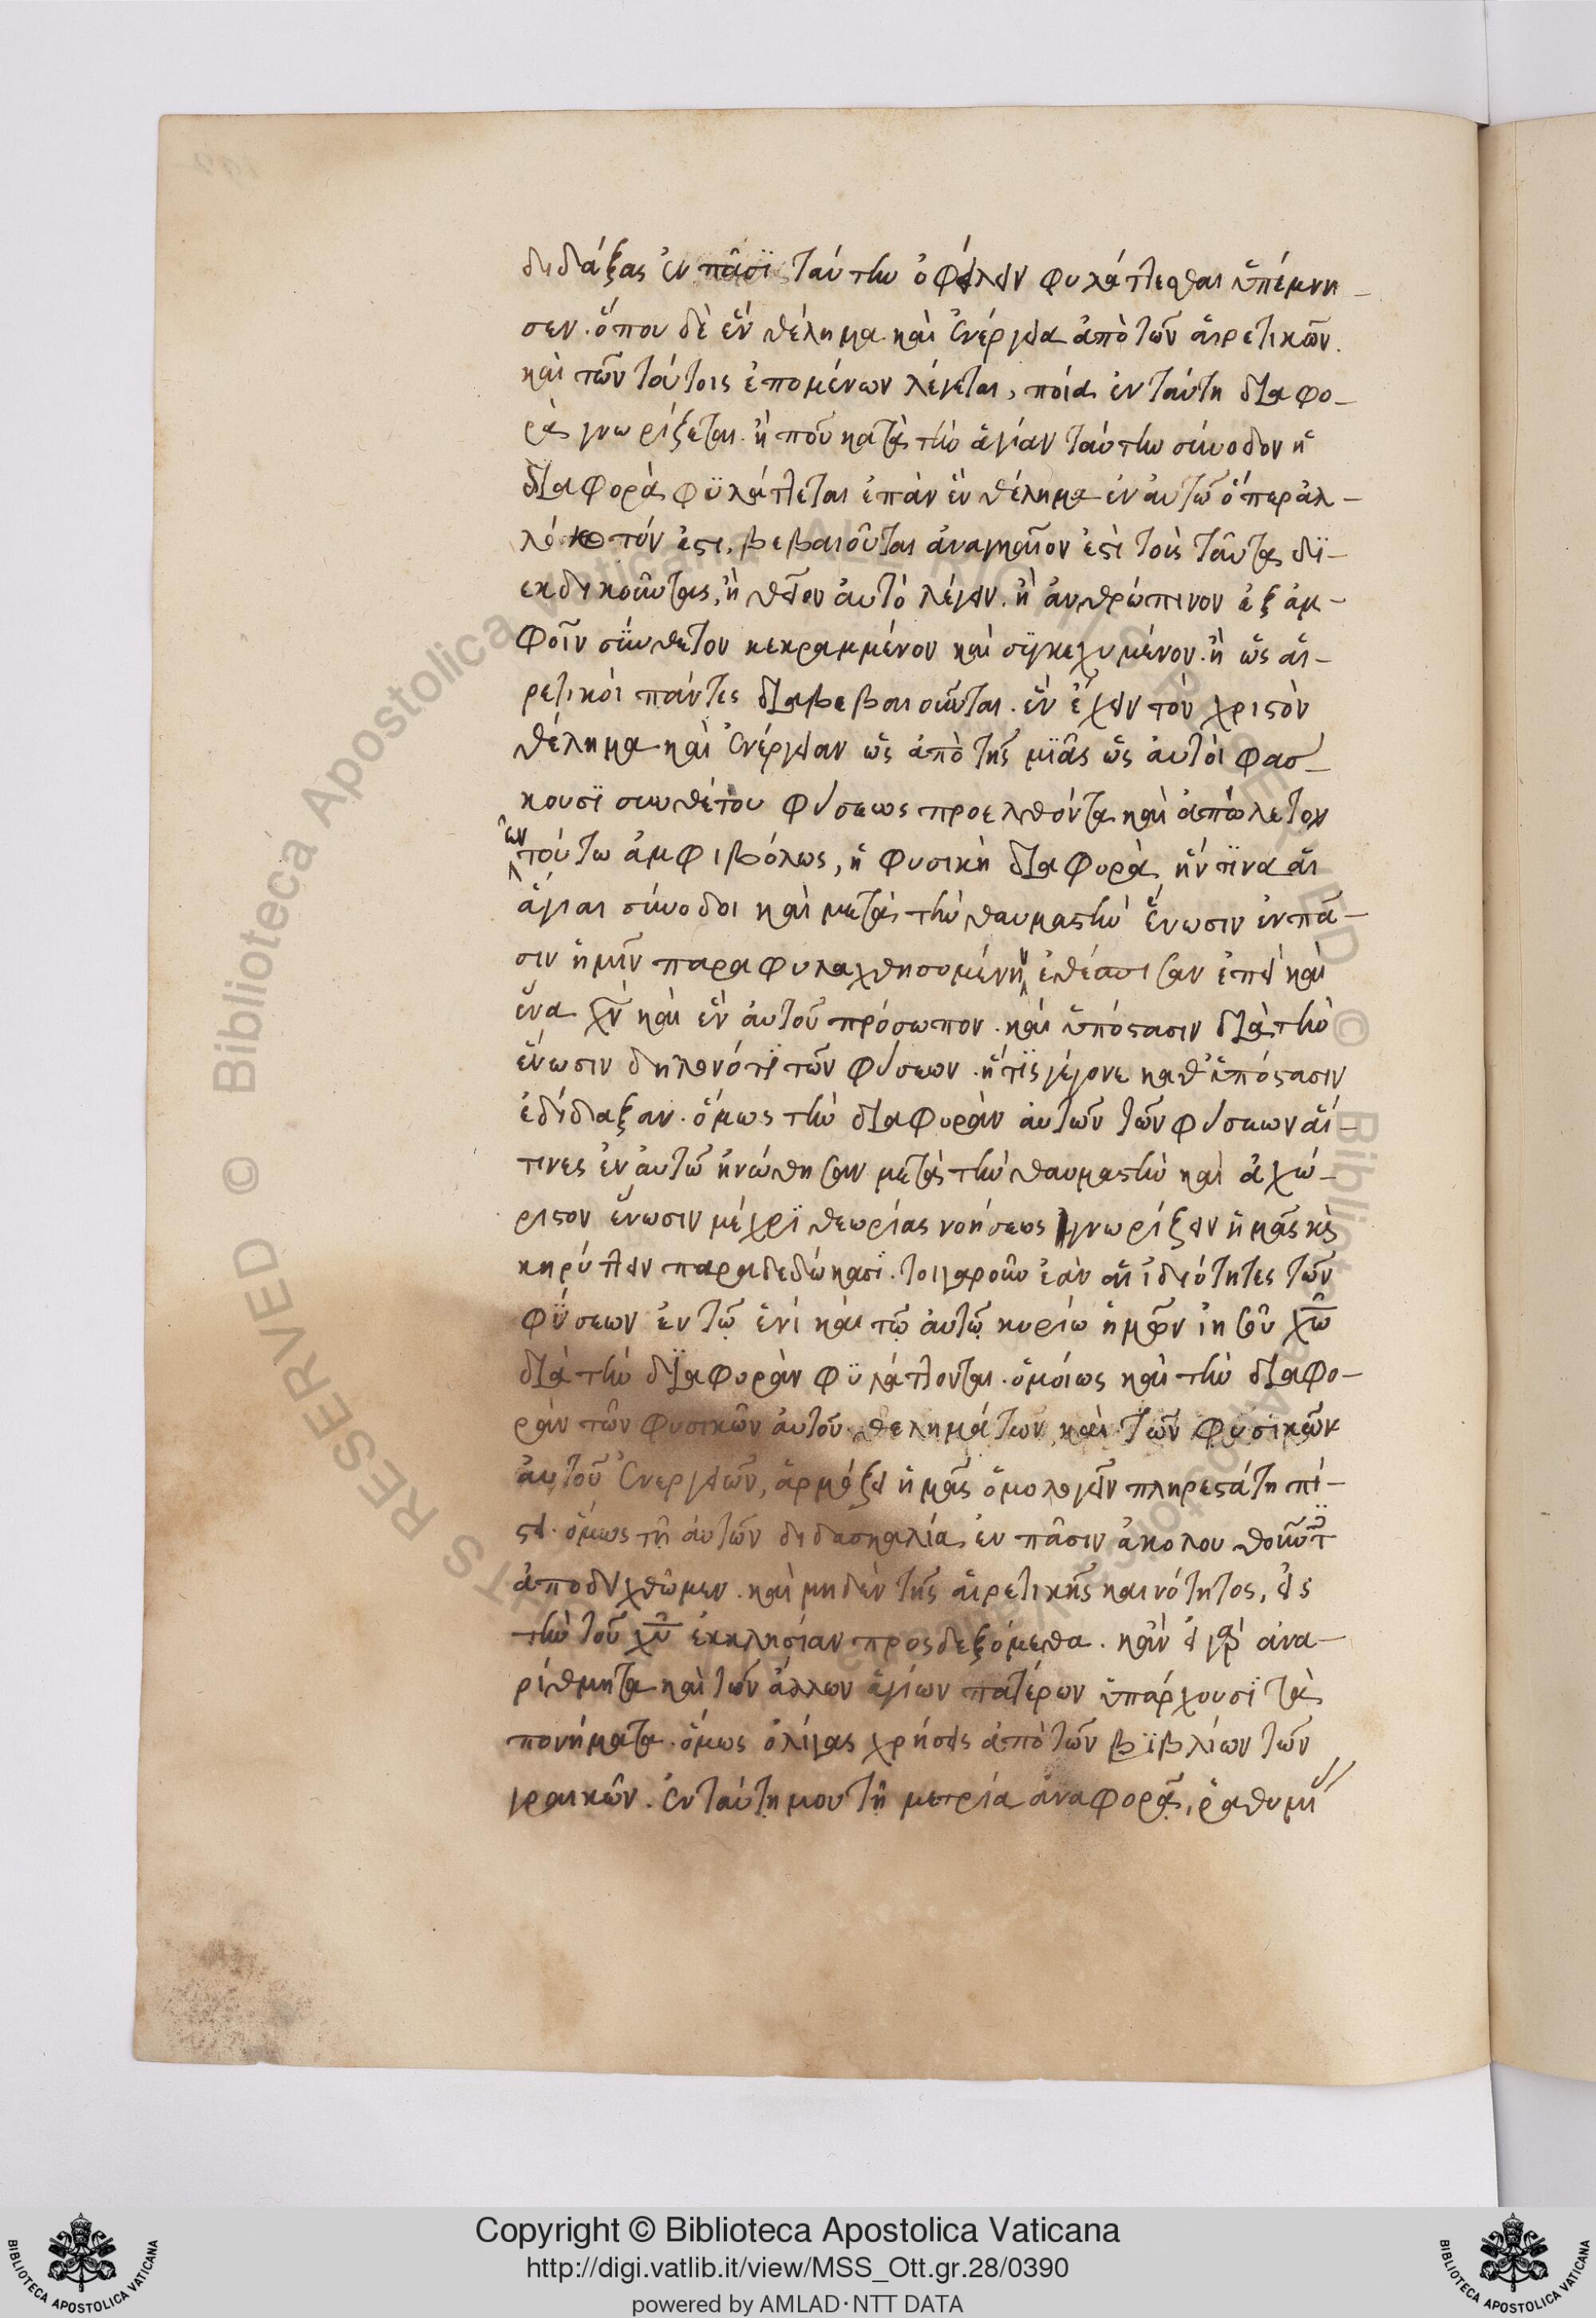 διδάξας ἐν πᾶσϊ ταύτην ὀφείλειν φυλάττεσθαι ὑπέμνη-
σεν. ὅπου δὲ ἓν θέλημα καὶ ἐνέργεια ἀπὸ τῶν αἱρετικῶν.
καὶ τῶν τούτοις ἑπομένων λέγεται, ποία ἐν ταύτη διαφο-
ρὰ γνωρίζεται. ἢ ποῦ κατὰ τὴν ἁγίαν ταύτην σύνοδον ἡ
διαφορὰ φϋλάττεται ἐπὰν ἓν θέλημα ἐν αὐτῶ ὅπερ ἀλ-
λόκοτόν ἐστι, βεβαιοῦται ἀναγκαῖον ἐστὶ τοὺς ταῦτα δϊ-
εκδικοῦντας, ἢ θεῖον αὐτὸ λέγειν. ἢ ἀνθρώπινον ἐξ ἀμ-
φοῖν σύνθετον κεκραμμένον καὶ συγκεχυμένον. ἢ ὡς αἱ-
ρετικοὶ πάντες διαβεβαιοῦνται. ἓν ἔχειν τὸν χριστὸν
θέλημα καὶ ἐνέργειαν ὡς ἀπὸ τῆς μϊᾶς ὡς αὐτοὶ φασ-
κουσϊ συνθέτου φύσεως προελθόντα καὶ ἀπώλετον
ἐν τούτω ἀμφιβόλως, ἡ φυσικὴ διαφορὰ ἥν τϊνα αἱ
ἅγιαι σύνοδοι καὶ μετὰ τὴν θαυμαστὴν ἕνωσιν ἐν πᾶ-
σιν ἡμῖν παραφυλαχθησομένην ἐθέσπισαν ἐπεὶ καὶ
ἕνα χν καὶ ἓν αὐτοῦ πρόσωπον. καὶ ὑπόστασιν διὰ τὴν
ἕνωσιν δηλονότϊ τῶν φύσεων. ἥτϊς γέγονε καθ' ὑπόστασιν
ἐδίδαξαν. ὅμως τὴν διαφορὰν αὐτῶν τῶν φύσεων αἵ-
τινες ἐν αὐτῶ ἡνώθησαν μετὰ τὴν θαυμαστὴν καὶ ἀχώ-
ριστον ἕνωσιν μέχρϊ θεωρίας νοήσεως γνωρίζειν ἡμᾶς κὶ
κηρύττειν παραδεδώκασϊ. τοιγαροῦν ἐὰν αἱ ἰδιότητες τῶν
φύσεων ἐν τῷ ἑνὶ καὶ τῷ αὐτῷ κυρίω ἡμῶν ἰησοῦ χῶ
διὰ τὴν δϊαφορὰν φϋλάττονται. ὁμοίως καὶ τὴν διαφο-
ρὰν τῶν φυσικῶν αὐτοῦ θελημάτων, καὶ τῶν φυσϊκῶν
αὐτοῦ ἐνεργειῶν, ἁρμόζει ἡμᾶς ὁμολογεῖν πληρεστάτη πί-
στει. ὅμως τῇ αὐτῶν διδασκαλία ἐν πᾶσιν ἀκολουθοῦντ
ἀποδειχθῶμεν. καὶ μηδὲν τῆς αἱρετικῆς καινότητος, εἰς
τὴν τοῦ χυ ἐκκλησίαν προσδεξόμεθα. κἂν εἰ γὰρ ἀνα-
ρίθμητα καὶ τῶν ἄλλων ἁγίων πατέρων ὑπάρχουσϊ τὰ
πονήματα. ὅμως ὀλίγας χρήσεις ἀπὸ τῶν βϊβλίων τῶν
γραικῶν. ἐν ταύτη μου τῇ μετρία ἀναφορᾷ, ῥαθυμί